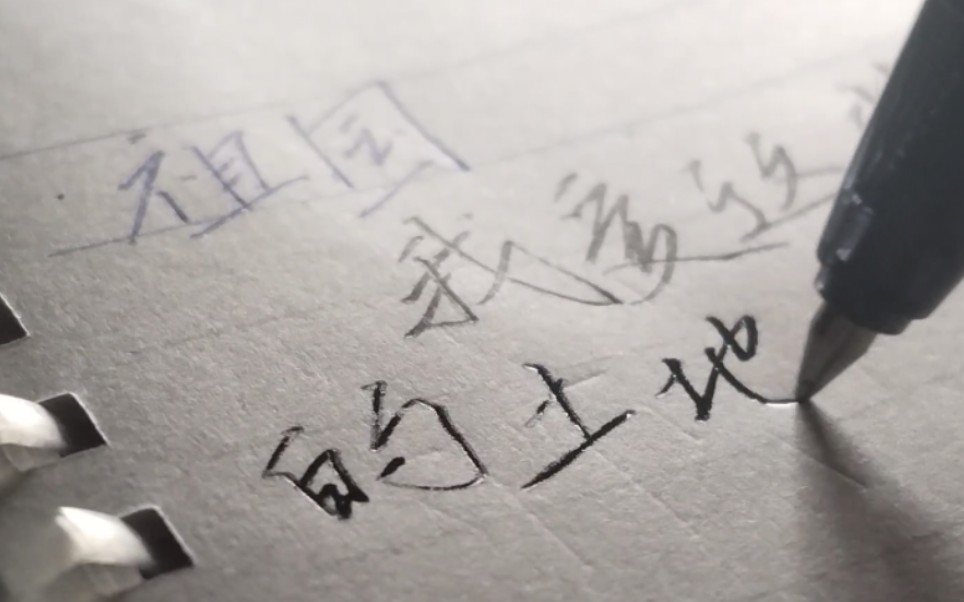 祖国
我爱丝
的土地